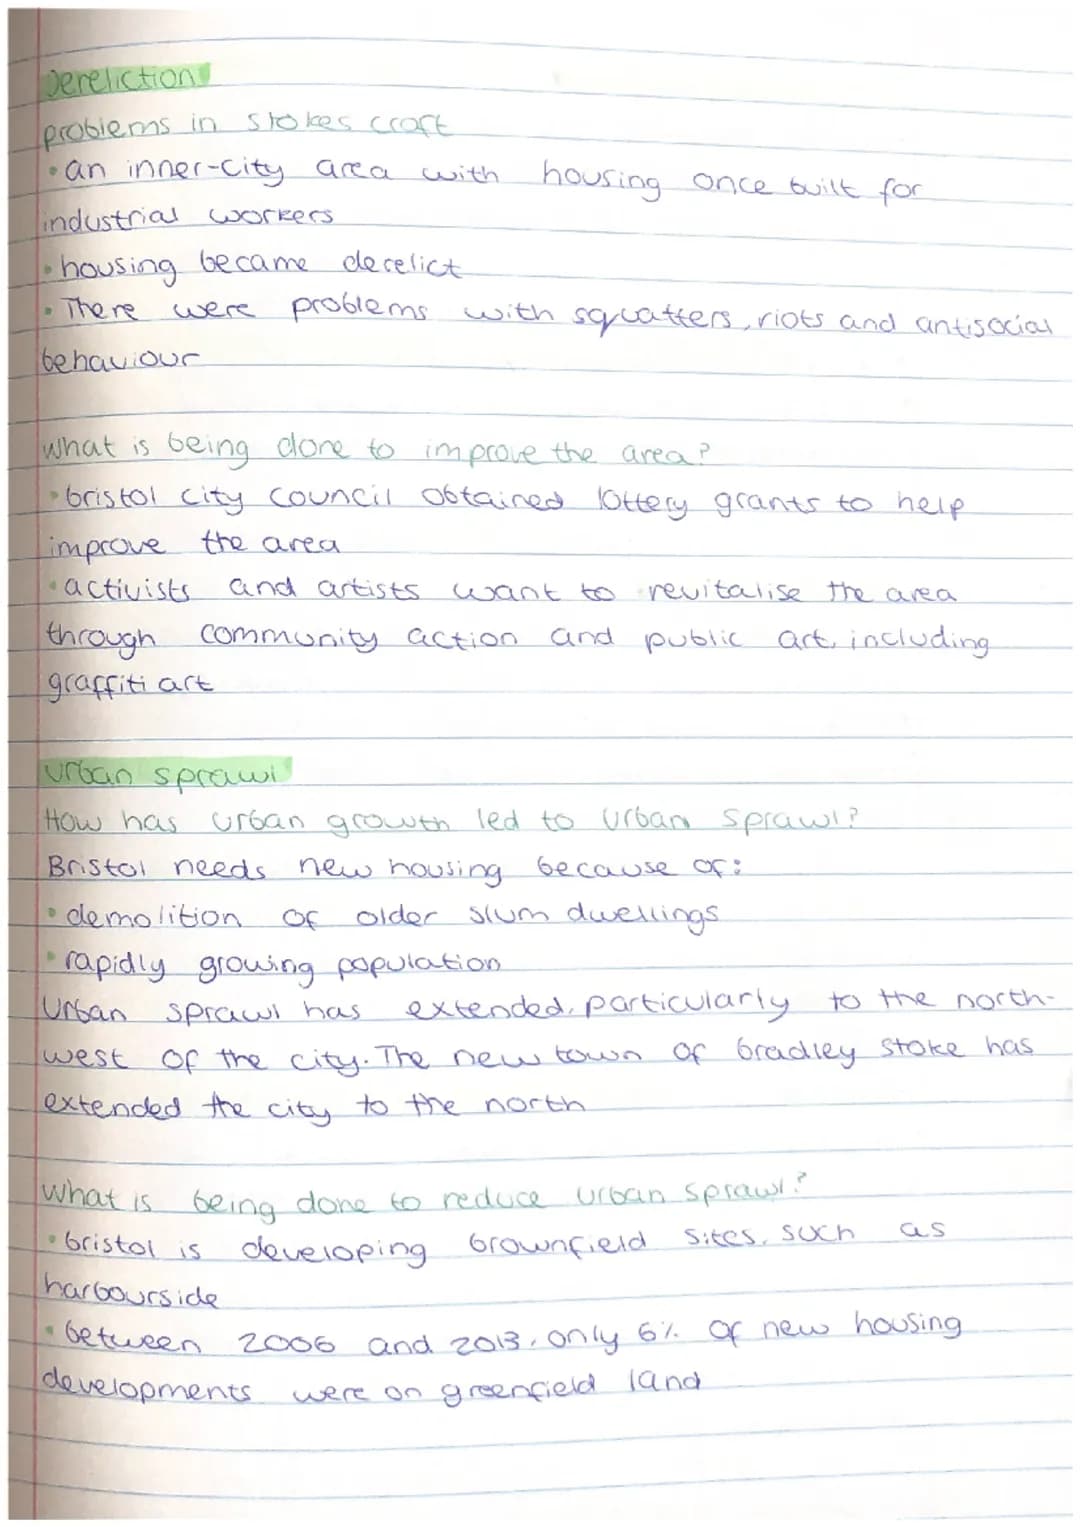 Dereliction
problems in stokes croft
• an inner-city area with housing once built for
industrial workers
• housing became derelict
• There were problems with squatters, riots and antisocial
behaviour
what is being done to improve the area?
• bristol city council obtained lottery grants to help
improve the area
• activists and artists want to revitalise the area
through community action and public art, including
graffiti art
urban sprawl
How has urban growth led to urban sprawl?
Bristol needs new housing because of:
• demolition of older slum dwellings
• rapidly growing population
Urban sprawl has extended, particularly to the north-
west of the city. The new town of bradley stoke has
extended the city to the north
what is being done to reduce urban sprawl?
• bristol is developing brownfield sites, such as
harbourside
• between 2006 and 2013, only 6% of new housing
developments were on greenfield land